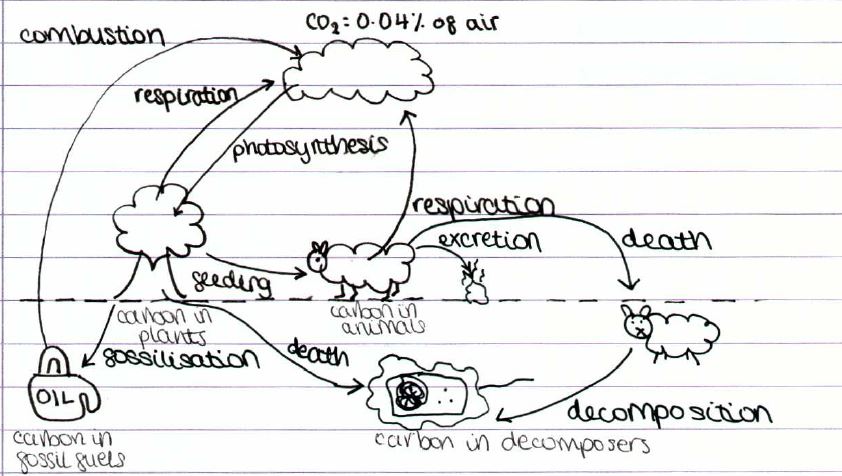 CO₂ = 0.04% of air
combustion
respiration
photosynthesis
respiration
excretion
death
feeding
carbon in
plants
carbon in
animals
fossilisation
death
OIL
decomposition
carbon in
fossil fuels
carbon in decomposers